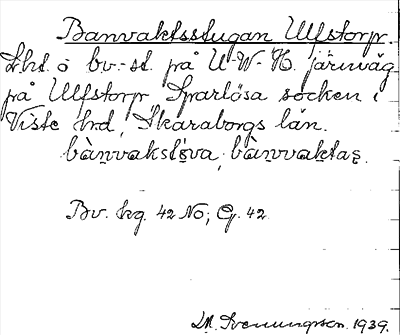 Banvaktsstugan Ulfstorp.
Lht. o bv.-st. på U-W-H. järnväg
på Ulfstorp Sparlösa socken i
Viste hrd, Skaraborgs län.
bànvakstṡva, bànvaktas.
Bv. hg. 42 No; G. 42
Svenungsson. 1939.